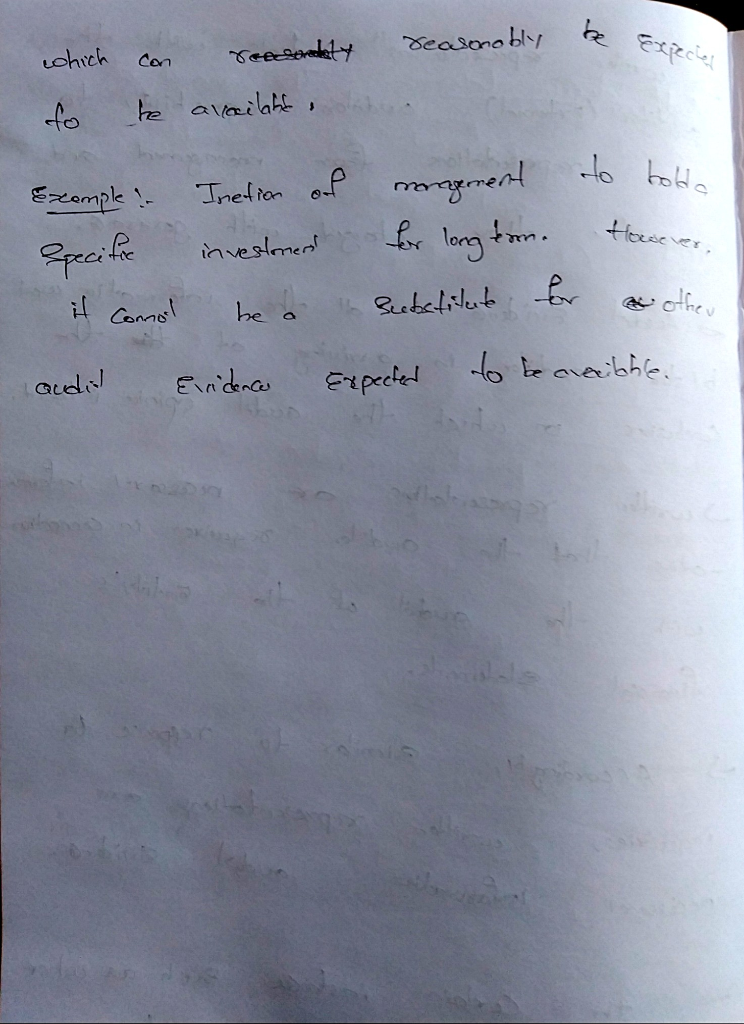 which can reasonably be Expected
to be available.
Example :- Inetion of management to hold a
Specific investment for long term. However,
it Cannot be a Substitute for other
audit Evidence Expected to be available.